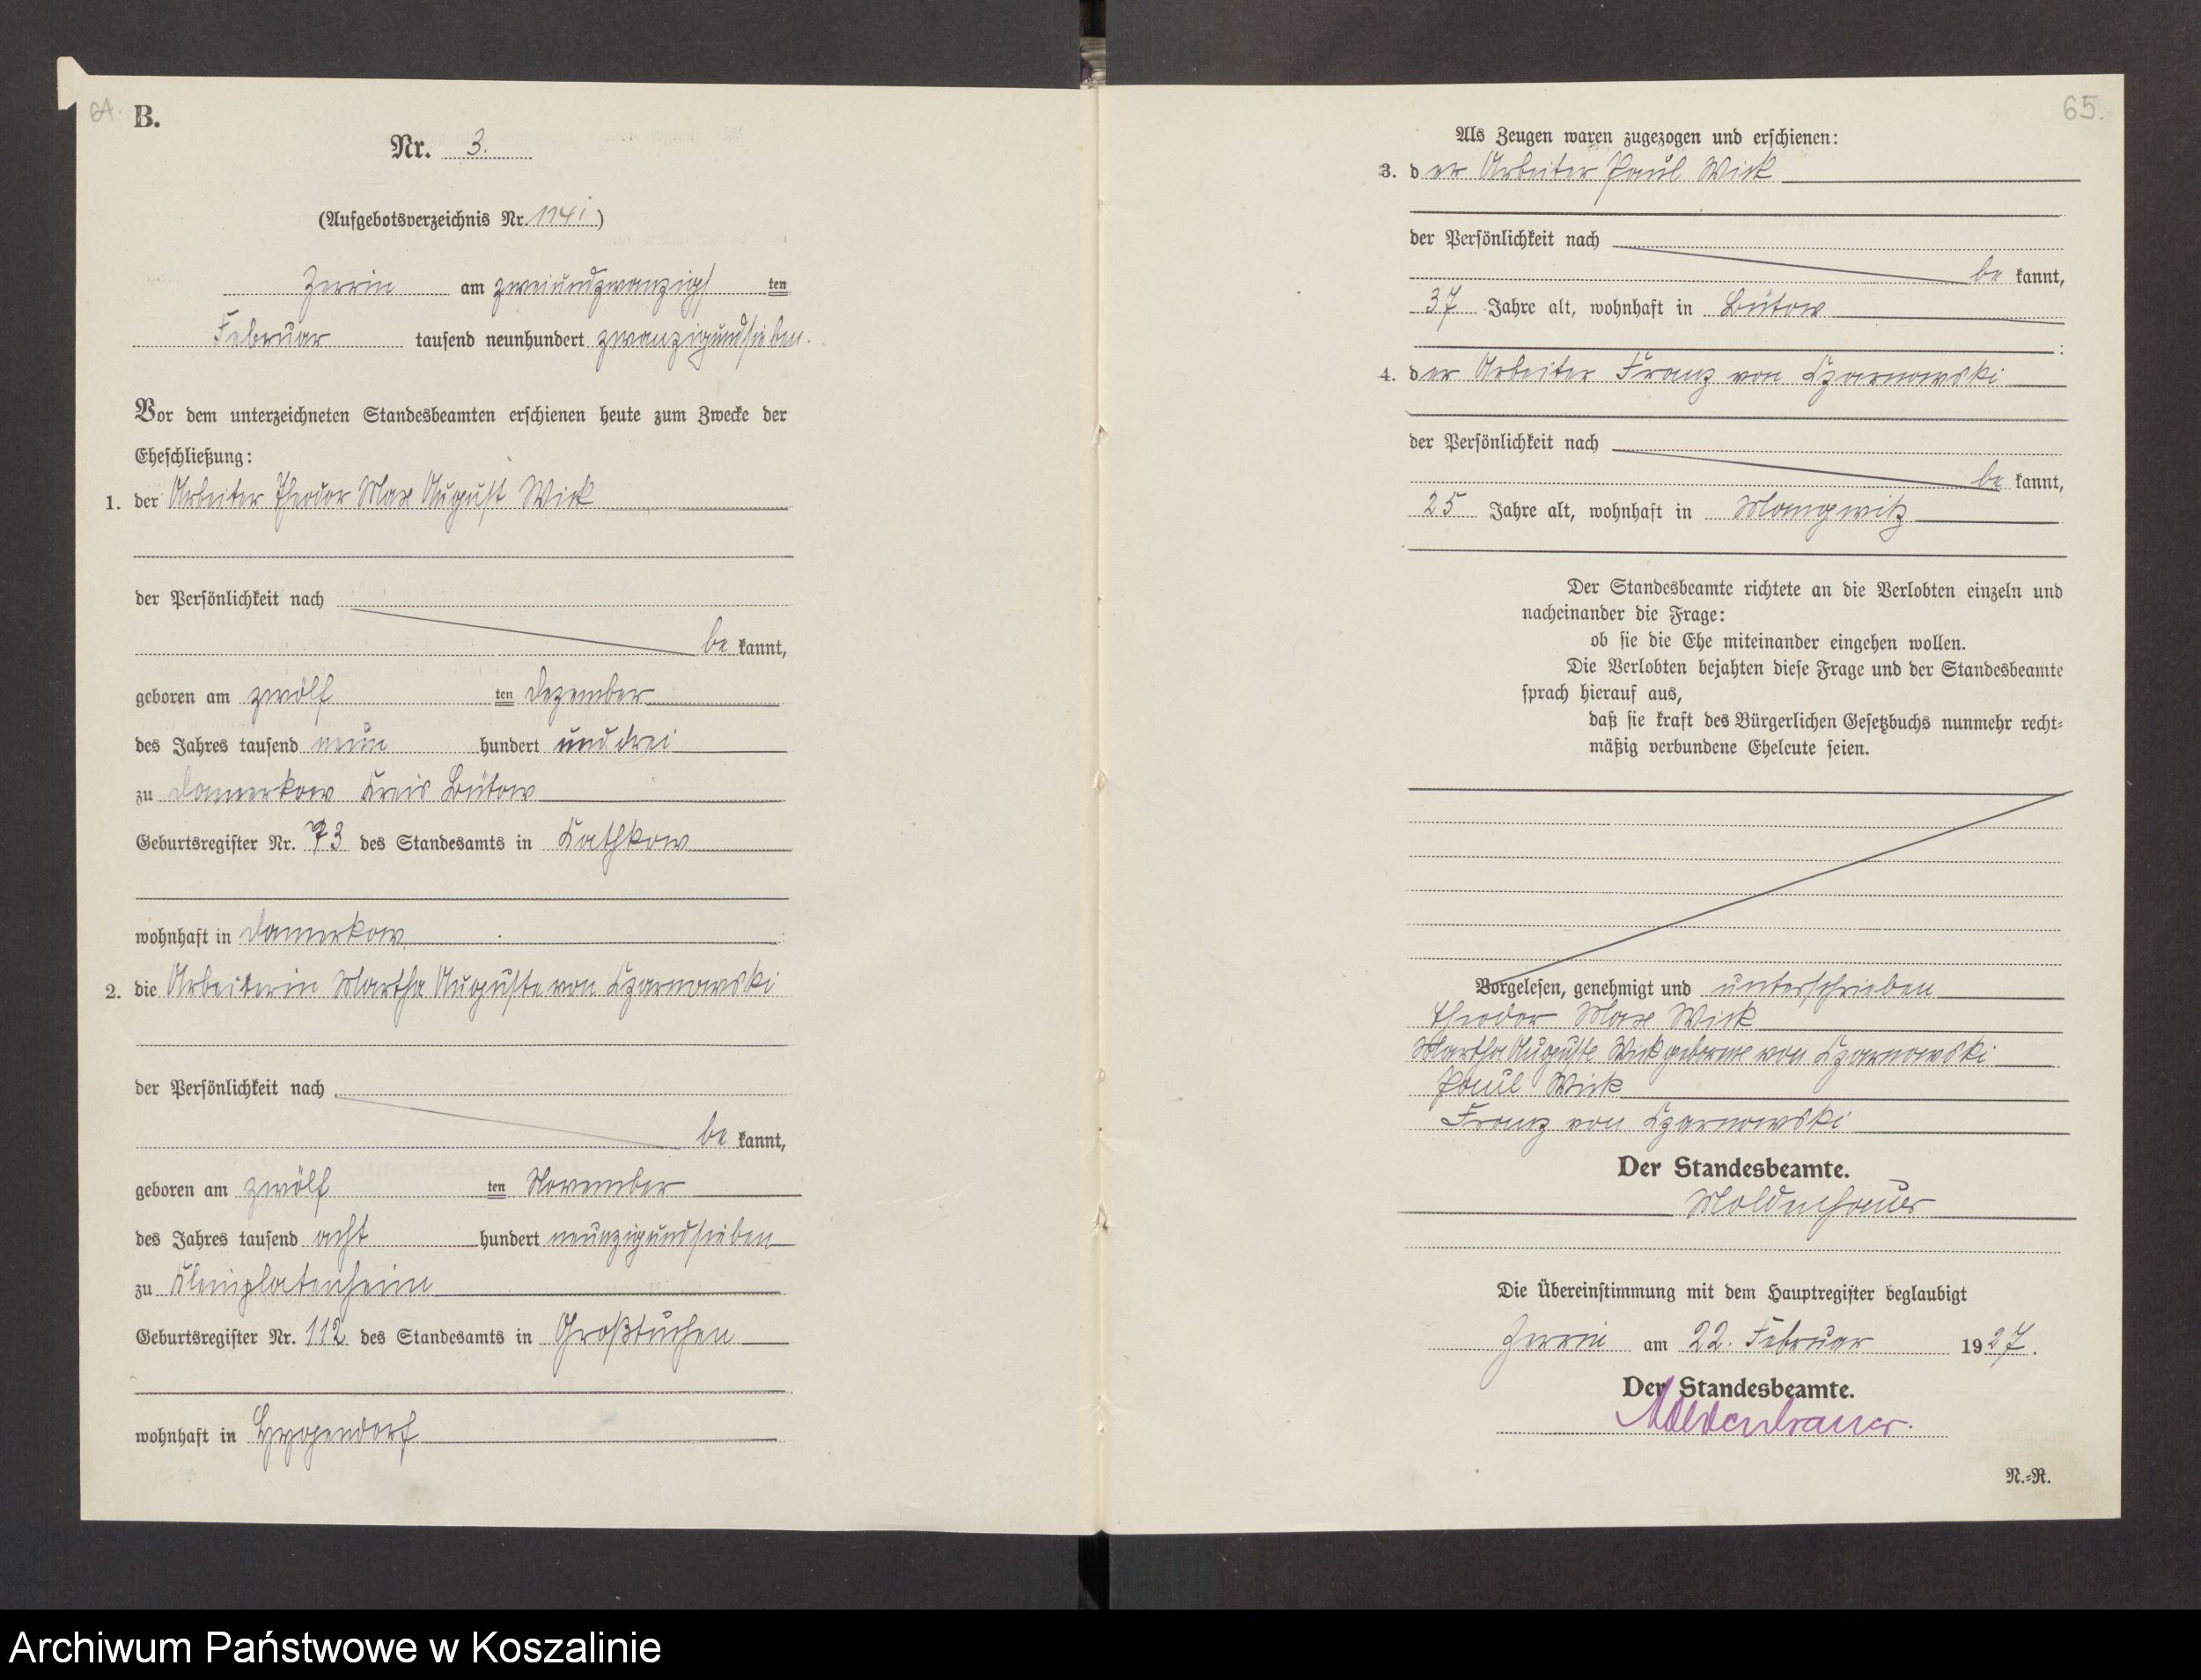 64.
B.
Nr. 3.
(Aufgebotsverzeichnis Nr.
Zerrin am zweiundzwanzigs ten
Februar tausend neunhundert zwanzigundsieben.
Vor dem unterzeichneten Standesbeamten erschienen heute zum Zwecke der
Eheschließung:
1. der Arbeiter Theodor Max August Wick
der Persönlichkeit nach
be kannt,
geboren am zwölf ten Dezember
des Jahres tausend neun hundert und drei
zu Damerkow Kreis Bütow
Geburtsregister Nr. 73 des Standesamts in Kathkow
wohnhaft in Damerkow
2. die Arbeiterin Martha Auguste von Czarnowski
der Persönlichkeit nach
be kannt,
geboren am zwölf ten November
des Jahres tausend acht hundert neunzigundsieben
zu Kleinplatenheim
Geburtsregister Nr. 112 des Standesamts in Großtuchen
wohnhaft in
65.
Als Zeugen waren zugezogen und erschienen:
3. der Arbeiter Paul Wick
der Persönlichkeit nach
be kannt,
37 Jahre alt, wohnhaft in Bütow
;
4. der Arbeiter Franz von Czarnowski
der Persönlichkeit nach
be kannt,
25 Jahre alt, wohnhaft in Mangwitz
Der Standesbeamte richtete an die Verlobten einzeln und
nacheinander die Frage:
ob sie die Ehe miteinander eingehen wollen.
Die Verlobten bejahten diese Frage und der Standesbeamte
sprach hierauf aus,
daß sie kraft des Bürgerlichen Gesetzbuchs nunmehr recht-
mäßig verbundene Eheleute seien.
Vorgelesen, genehmigt und unterschrieben
Theodor Max Wick
Martha Auguste Wick geborne von Czarnowski
Paul Wick
Franz von Czarnowski
Der Standesbeamte.
Moldenhauer
Die Übereinstimmung mit dem Hauptregister beglaubigt
Zerrin am 22. Februar 1927.
Der Standesbeamte.
Moldenhauer.
N.-R.
Archiwum Państwowe w Koszalinie